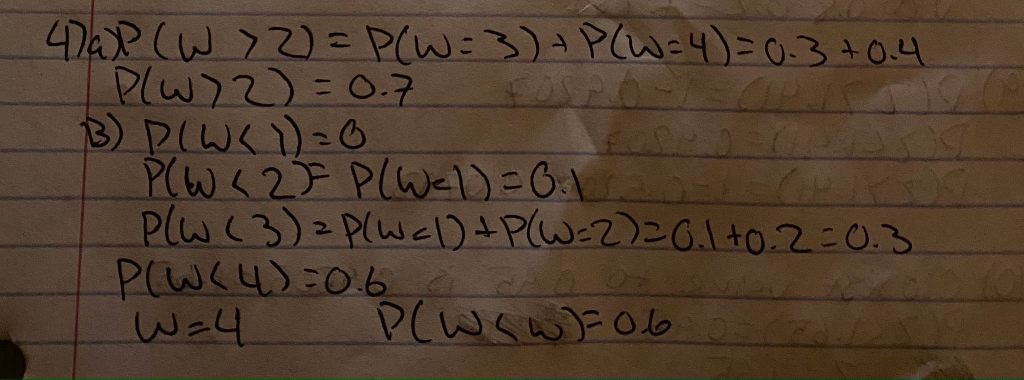 4)a) P(W > 2) = P(W=3) + P(W=4) = 0.3 + 0.4
P(W>2) = 0.7
B) P(W<1) = 0
P(W<2) = P(W=1) = 0.1
P(W<3) = P(W=1) + P(W=2) = 0.1+0.2 = 0.3
P(W<4) = 0.6
w=4 P(W<w) = 0.6